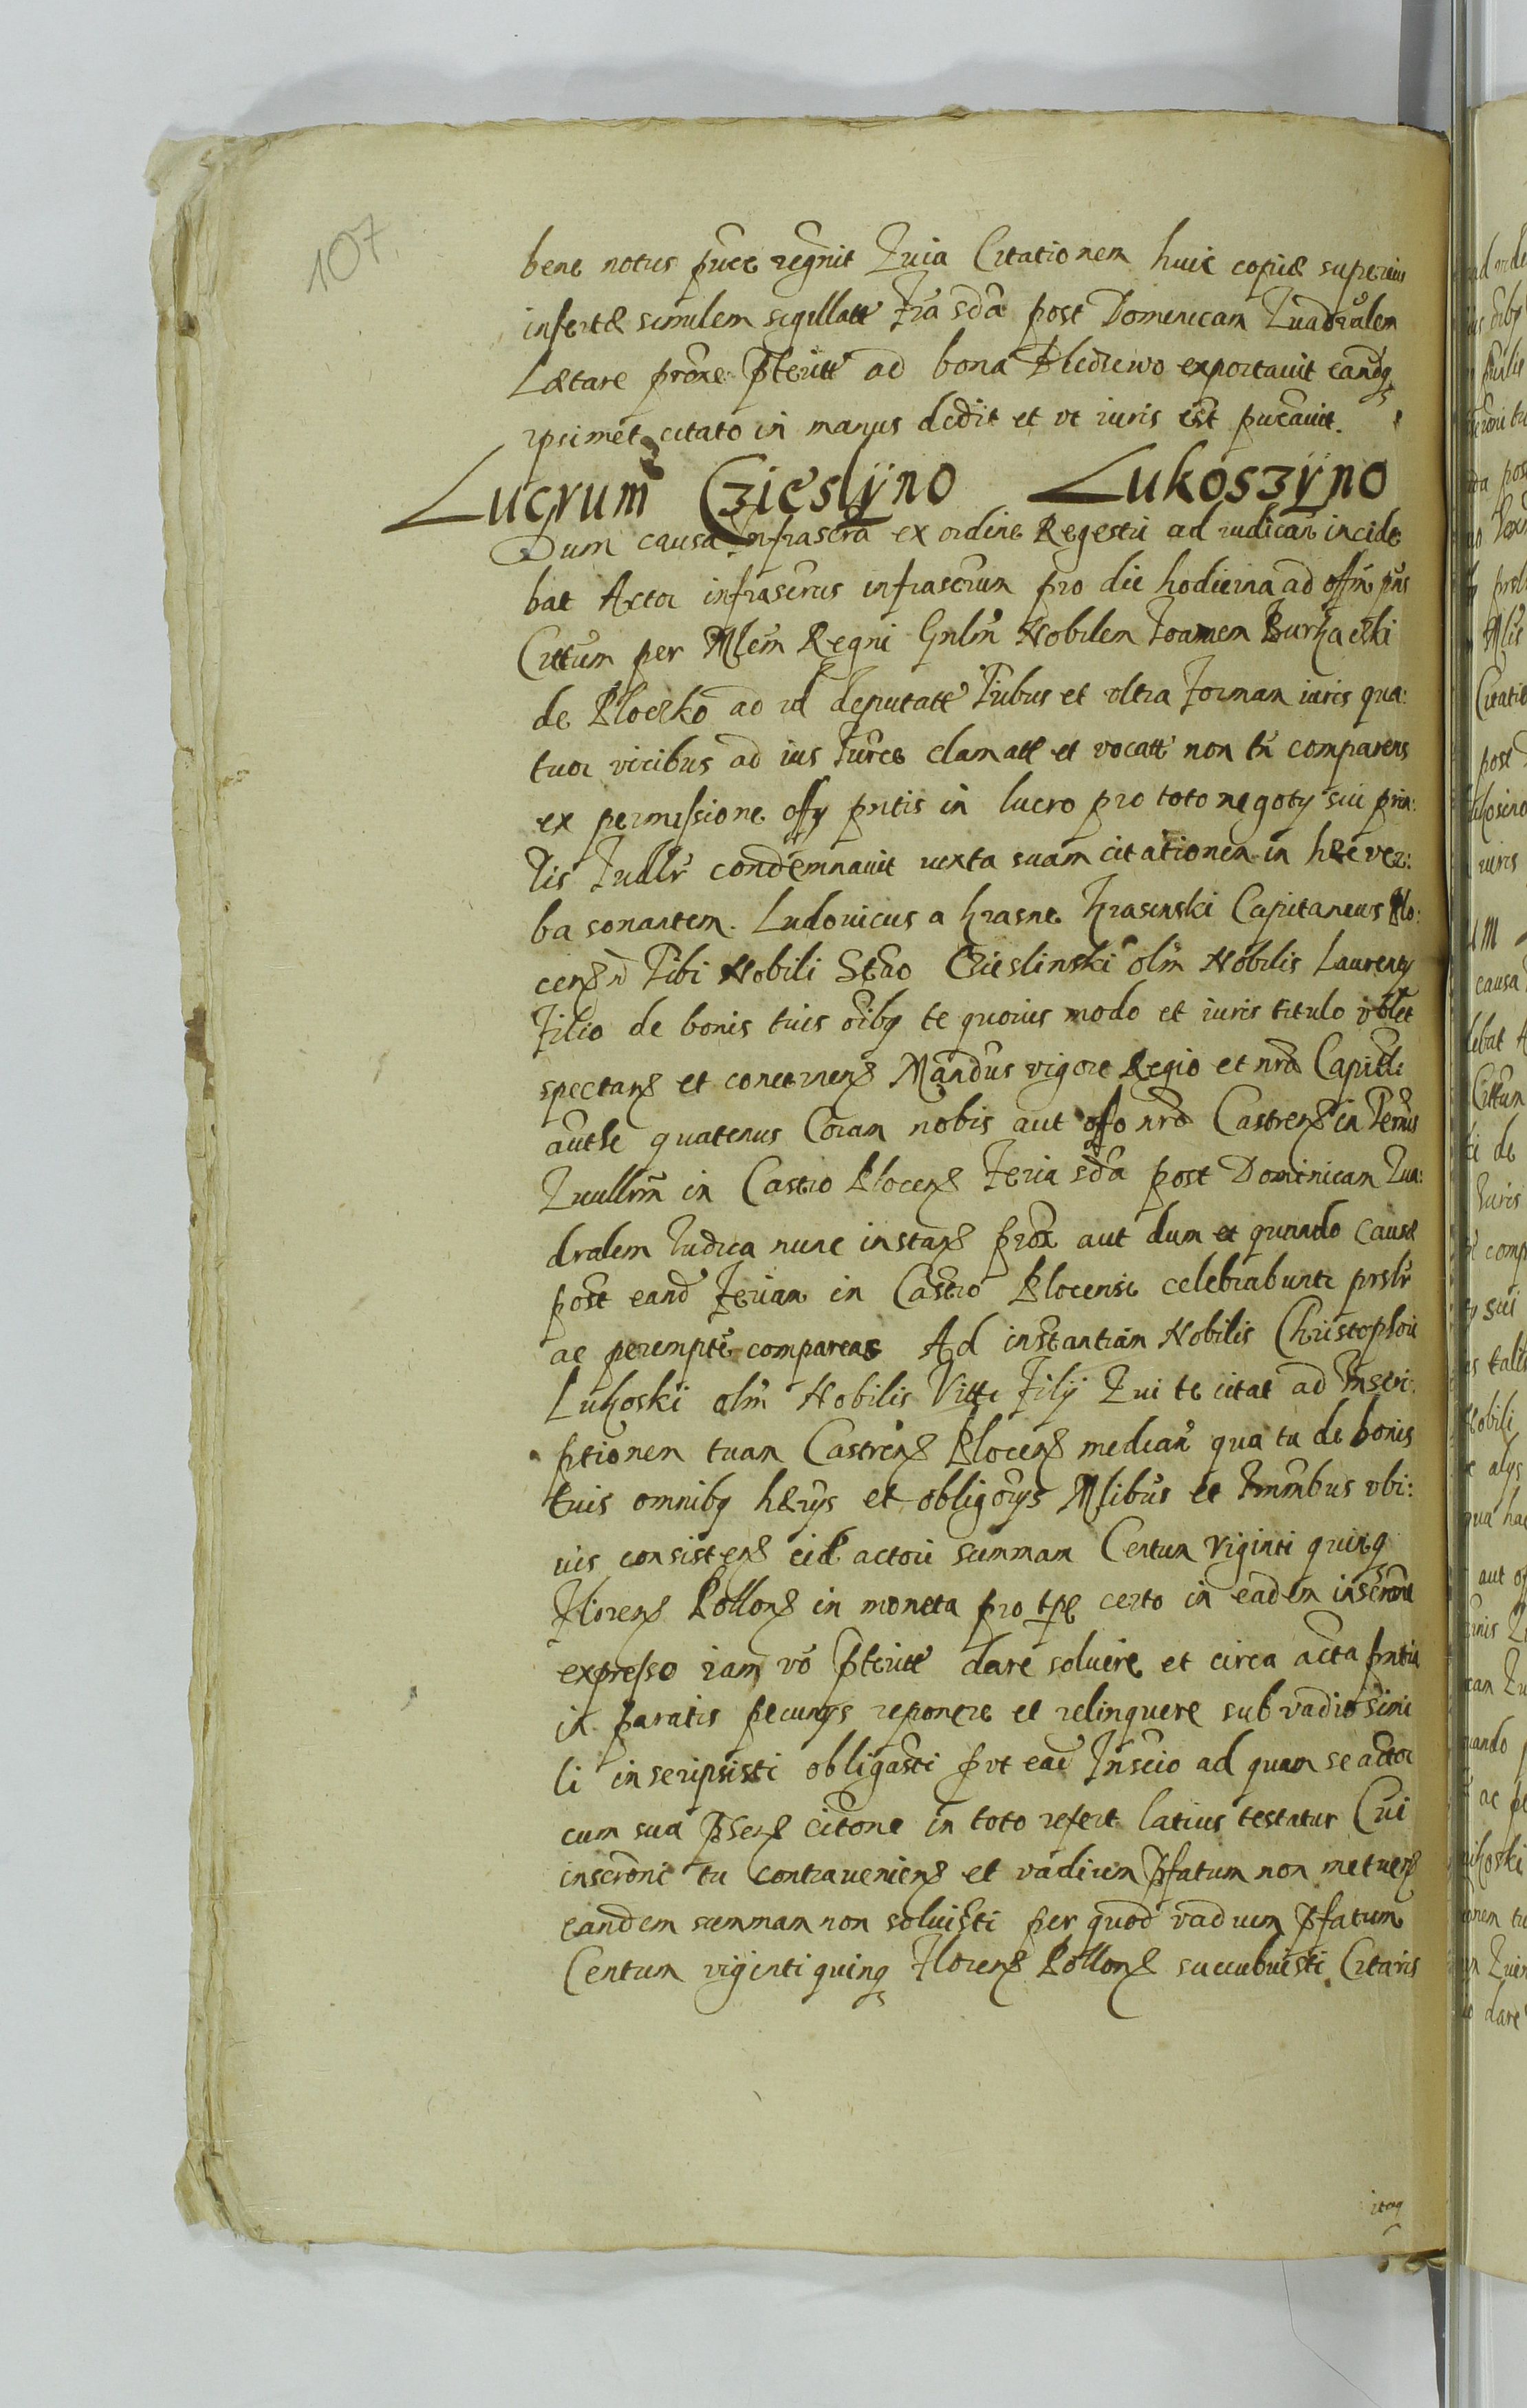 107.
bene notus pnce regnit Quia Citationem huic copiæ superius
insertæ similem sigillatt fra sda post Dominicam Quadralem
Lætare proxe ptritt ad bona exportavit eandq
ipsimet citato in manus dedit et vt iuris est pucavit.
Lucrum Czieslÿno Lukoszÿno
Dum causa Infrascra ex ordine Regestri ad iudican incide
bat Actor infrascrus infrascrum pro die hodierna ad offm pns
Cittum per Mlem Regni Gnlm Nobilem Joannem
de Plocko ad id deputatt Tribus et vltra formam iuris qua:
tuor vicibus ad ius Turce clamatt et vocatt non tn comparens
ex permissione offy pntis in lucro pro toto negoty sui prin:
lis Tudlr condemnauit iuxta suam citationem in hæc ver:
ba sonantem. Ludouicus a Krasne Krasinski Capitaneus Plo:
cens Tibi Nobili Stao Czieslinski olim Nobilis Laurenty
filio de bonis tuis oibq te quouis modo et iuris titulo
spectans et concernens Mandus vigore Regio et nra Capitli
authe quatenus Coram nobis aut offo nro Castrens in Termis
Quullrm in Castro Plocens Feria sda post Dominicam Qua:
dralem Judica nunc instans prox aut dum et quando causæ
post eand Feriam in Castro Plocensi celebrabunti prslr
ac perempte compareas Ad instantiam Nobilis Christophori
Lukoski olim Nobilis Vitti filij Qui te citat ad Inscri:
ptionem tuam Castrens Plocens median qua tu de bonis
tuis omnibq hærys et obligorys Mlibus et Immbus vbi:
uis consistens eid actori summam Centum viginti quinq
Florens Pollons in moneta pro tpe certo in eadem inscrone
expresso iam vo ptritt dare soluere et circa acta pntia
in paratis pecunys reponere et relinquere sub vadio simi
li inscripsisti obligasti put ead Inscio ad quam se actor
cum sua psens citone in toto refert latius testatur Cui
inscroni tu contraueniens et vadium pfatum non metuens
eandem summam non soluisti per quod vadium pfatum
Centum viginti quinq Florens Pollons succubuisti Citaris
itaq